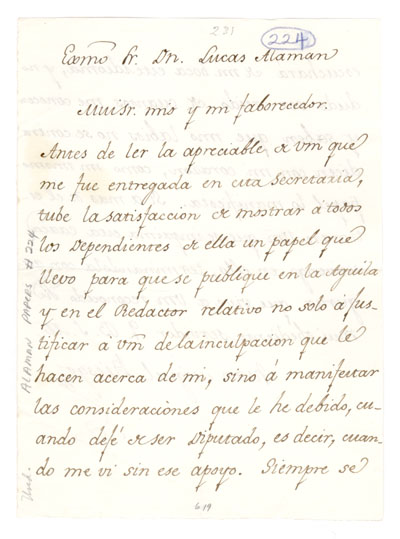 221
224
Exmõ Sr. Dn. Lucas Alaman
Mui Sr. mio y mi faborecedor.
Antes de leer la apreciable de Vm que
me fue entregada en esta Secretaría,
tube la satisfaccion de mostrar á todos
los Dependientes de ella un papel que
llevo para que se publique en la Aguila
y en el Redactor relativo no solo á jus-
tificar á Vm de la inculpacion que le
hacen acerca de mi, sino á manifestar
las consideraciónes que le he debido, cu-
ando dejé de ser Diputado, es decir, cuan-
do me vi sin ese apoyo. Siempre se
ALAMAN PAPERS # 224
Und.
619